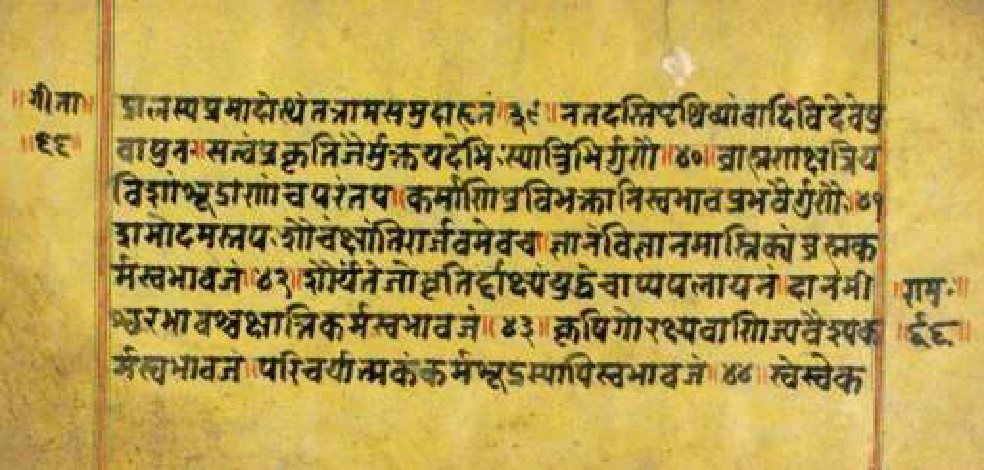 ॥गीता॥
॥६६॥
द्रालस्यप्रमादोत्थंतत्तामसमुदाहृतं॥३९॥नतदस्तिपृथिव्यांवादिविदेवेषु
वापुनः॥सत्वंप्रकृतिजैर्मुक्तंयदेभिःस्यात्त्रिभिर्गुणैः॥४०॥ब्राह्मणक्षत्रिय
विशांशूद्राणांचपरंतप॥कर्माणिप्रविभक्तानिस्वभावप्रभवैर्गुणैः॥४१
शमोदमस्तपःशौचंक्षांतिरार्जवमेवच॥ज्ञानंविज्ञानमास्तिक्यंब्रह्मक
र्मस्वभावजं॥४२॥शौर्यंतेजोधृतिर्दाक्ष्यंयुद्धेचाप्यपलायनं॥दानमी
श्वरभावश्चक्षात्रिकर्मस्वभावजं॥४३॥कृषिगोरक्ष्यवाणिज्यवैश्यक
र्मस्वभावजं॥परिचर्यात्मकंकर्मशूद्रस्यापिस्वभावजं॥४४॥स्वेस्वेक
॥रामः॥
॥६६॥